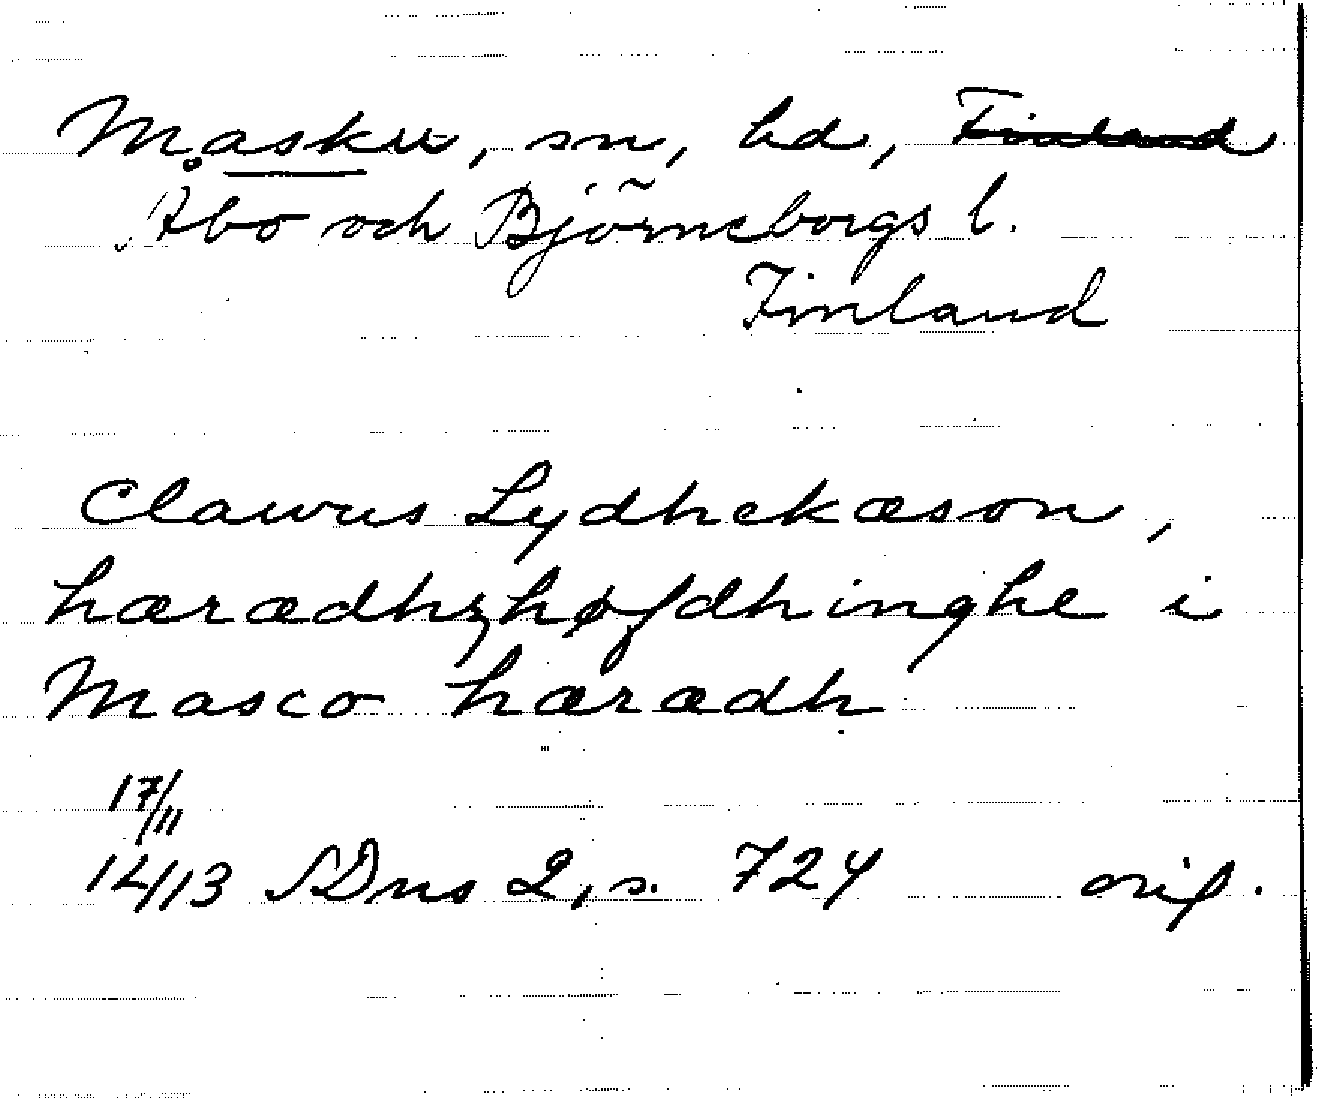 Masku, sn, hd, Finland
Åbo och Björneborgs l.
Finland
Clawus Lydhekæson,
hæradhzhøfdhinghe i
Masco hæradh
17/11
1413 SDns 2, s. 724 orig.